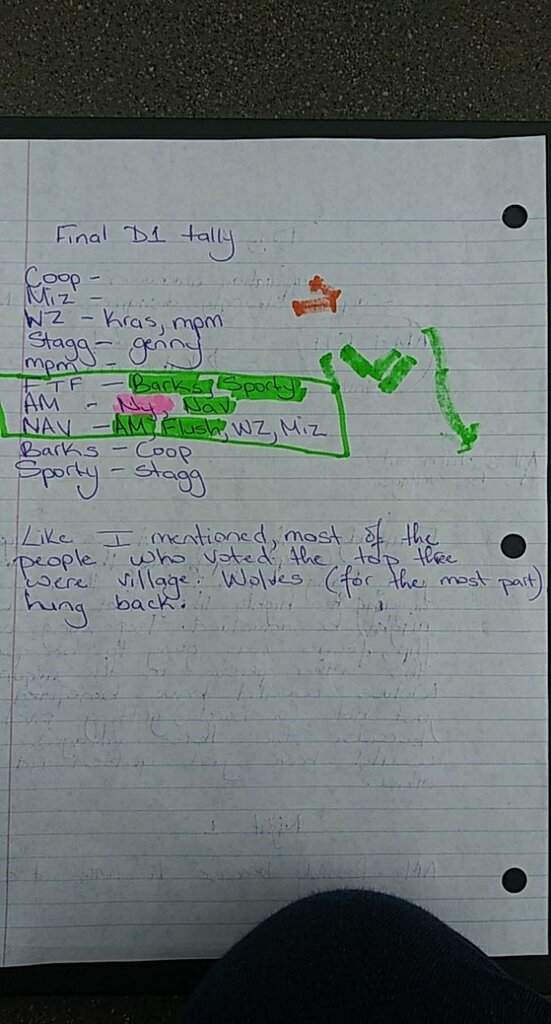 Final D1 tally
Coop -
Miz -
WZ - Kras, mpm
Stagg - genny
mpm -
FTF - Barks, Sporty
AM - Ny, Nav
NAV - AM, Flush, WZ, Miz
Barks - Coop
Sporty - Stagg
Like I mentioned, most of the
people who voted the top three
were village. Wolves (for the most part)
hung back.